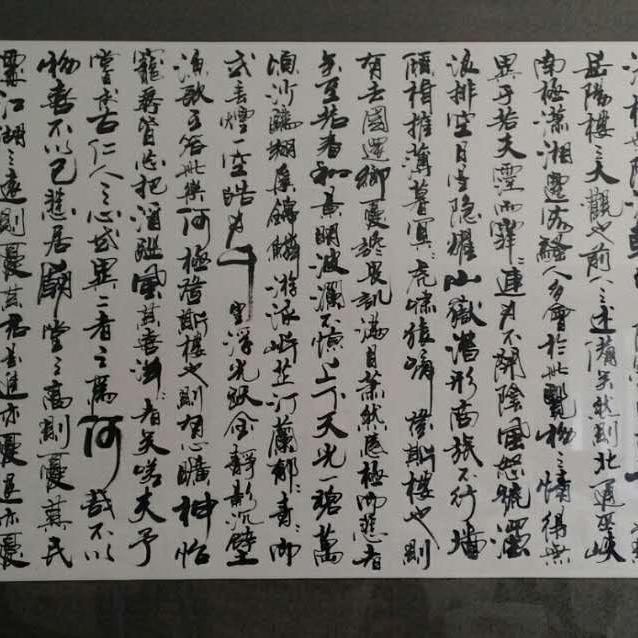 岳陽樓之大觀也前人之述備矣然則北通巫峽
南極瀟湘遷客騷人多會於此覽物之情得無
異乎若夫霪雨霏〻連月不開陰風怒號濁
浪排空日星隱耀山嶽潛形商旅不行檣
傾楫摧薄暮冥〻虎嘯猿啼登斯樓也則
有去國還鄉憂讒畏譏滿目蕭然感極而悲者
矣至若春和景明波瀾不驚上下天光一碧萬
頃沙鷗翔集錦鱗游泳岸芷汀蘭郁〻青〻而
或長煙一空皓月千里浮光躍金靜影沉璧
漁歌互答此樂何極登斯樓也則有心曠神怡
寵辱皆忘把酒臨風其喜洋〻者矣嗟夫予
嘗求古仁人之心或異二者之為何哉不以
物喜不以己悲居廟堂之高則憂其民
處江湖之遠則憂其君是進亦憂退亦憂